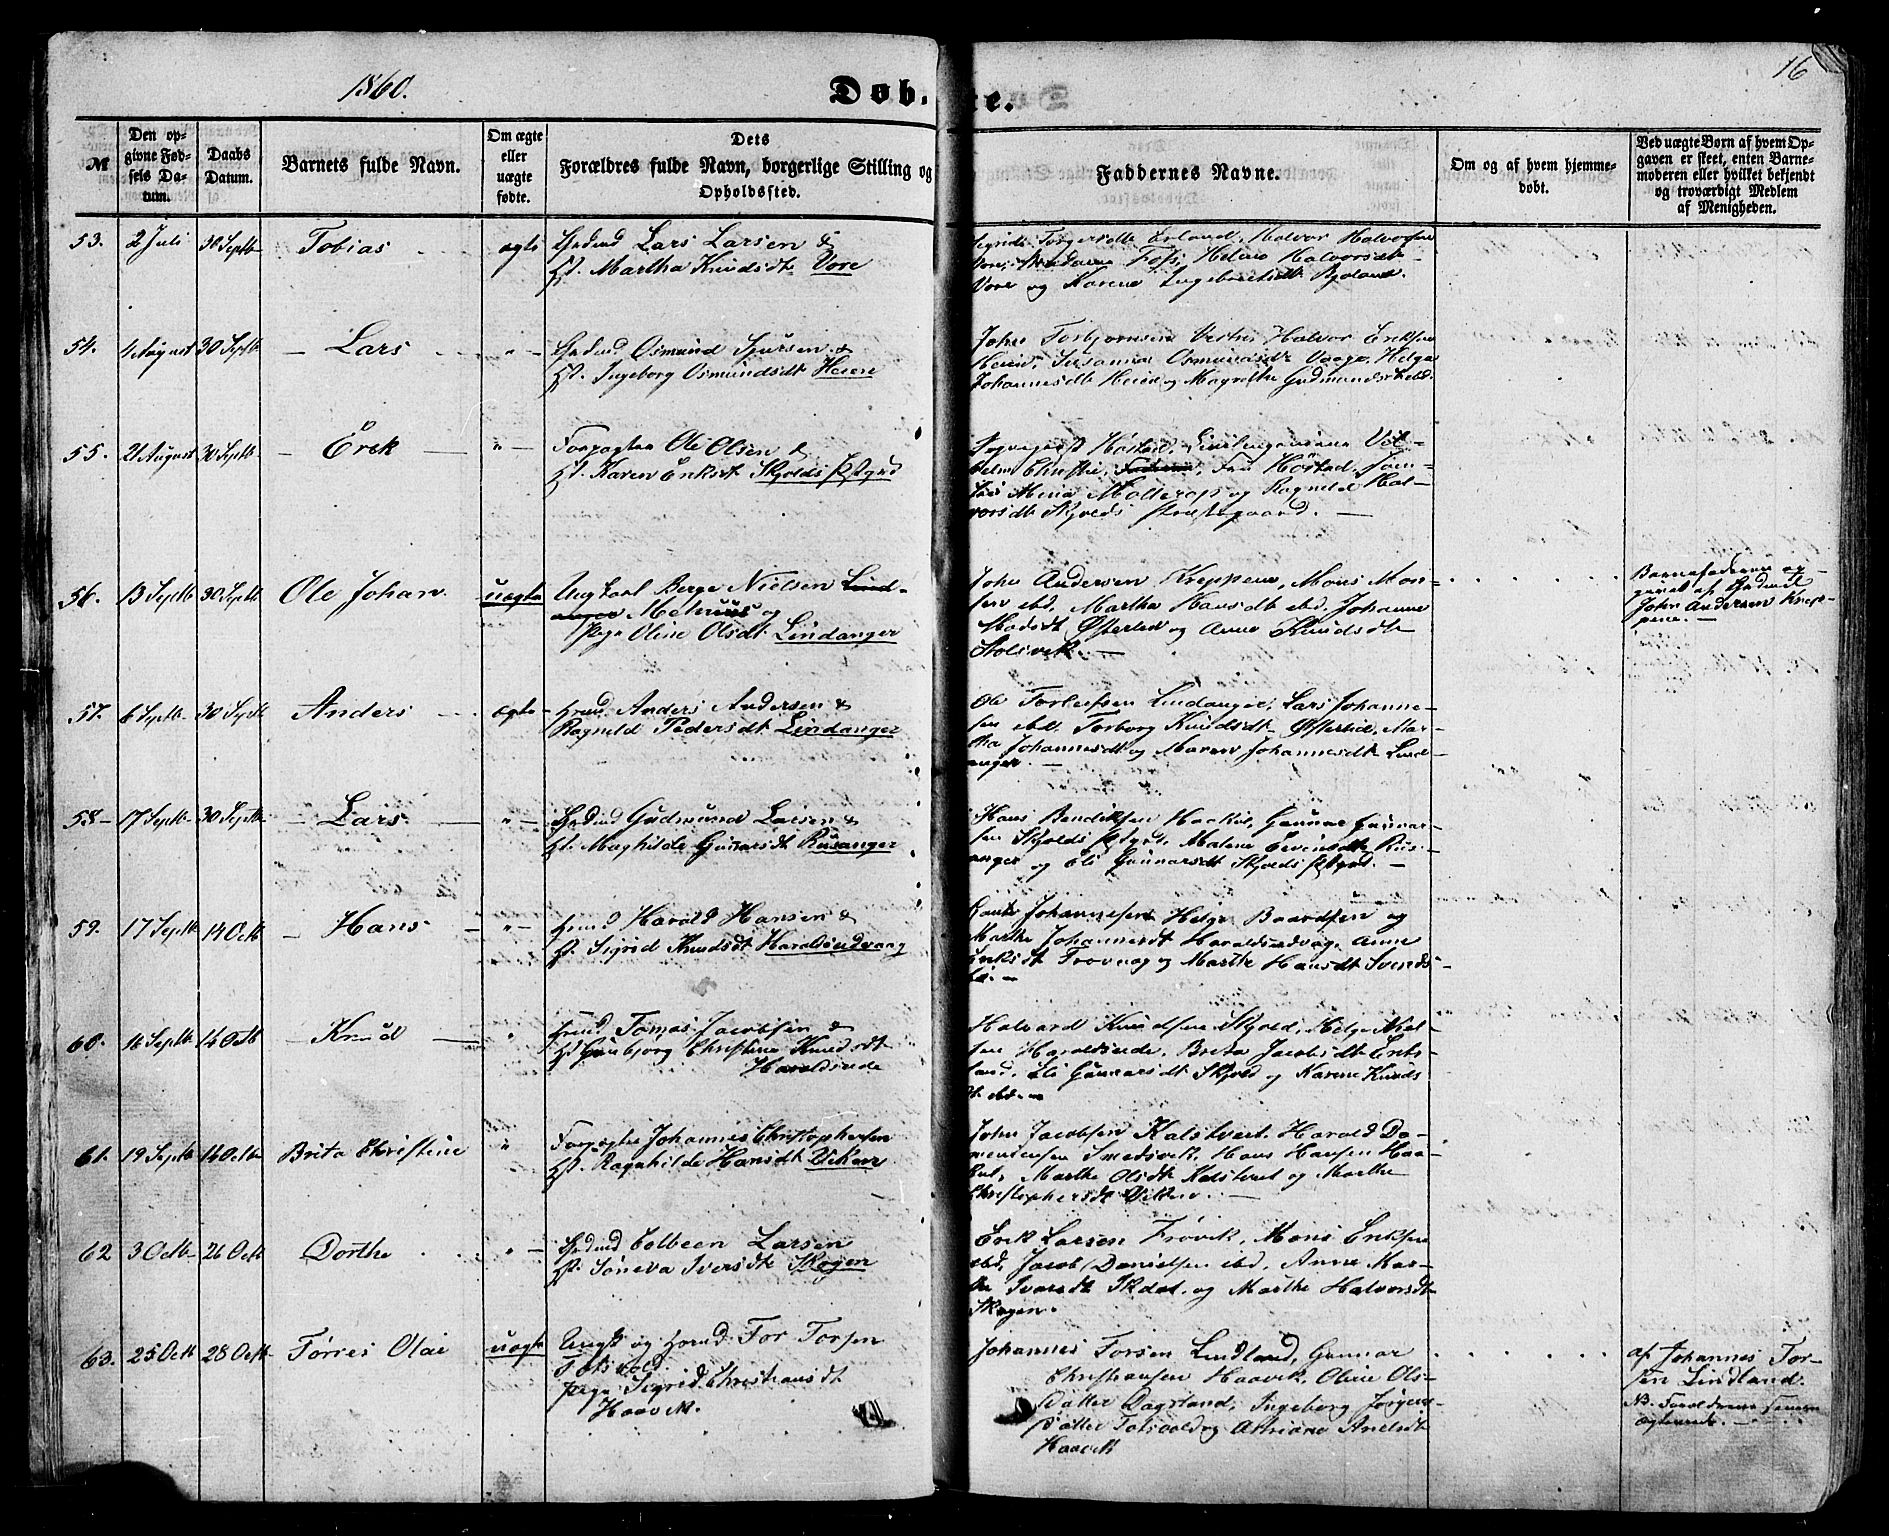 1860.
Døb-te.
16
№
Den op-
givne Fød-
sels Da-
tum.
Daabs
Datum.
Barnets fulde Navn.
Om ægte
eller
uægte
fødte.
Dets
Forældres fulde Navn, borgerlige Stilling og
Opholdssted.
Faddernes Navne.
Om og af hvem hjemme-
døbt.
Ved uægte Børn af hvem Op-
gaven er skeet, enten Barne-
moderen eller hvilket bekjendt
og troværdigt Medlem
af Menigheden.
53. 2 Juli 30 Septb Tobias ægte Lars Larsen &
H. Martha Knudsdt Vore
Torgersdt Erland, Halvor Halvorsen
Vore, Madame Foss, Helene Halvorsdt
Vore og Karene Ingebretsdt
54. 4 August 30 Septb Lars "— Gbrmd Osmund Sjursen &
H. Ingeborg Osmundsdt
John Torbjørnsen Halvor Eriksen
Heien, Susanna Osmundsdt Vaage, Helga
Johannesdt Heien og Magrethe Gudmundsdt ebd.
55. 21 August 30 Septb Erek "— Forpagter Ole Olsen &
H. Karen Eriksdt Skjolds Pstgrd
Høstad,
Christie, Fru Høstad, Jom-
Mina Møllerop og Ragnild Hal-
vorsdt Skjolds Præstegaard. —
56. 13 Septb 30 Septb Ole Johan uægte Ungkarl Berge Nielsen Lind-
anger og
Pige Oline Olsdt Lindanger
John Andersen Kreppene, Mons Mon-
sen ebd, Martha Hansdt ebd, Johanne
Madsdt Østerlid og Anne Knudsdt
Stolsvik. —
Barnefaderen op-
givet af Gbrmd
John Andersen Krep-
pene. —
57. 6 Septb 30 Septb Anders ægte Anders Andersen &
Ragnild Pedersdt Lindanger
Ole Torleifsen Lindanger, Lars Johanne-
sen ebd, Torborg Knudsdt Østerlid, Mar-
tha Johannesdt og Maren Johannesdt Lind-
anger. —
58 17 Septb 30 Septb Lars "— Gbrmd Gudmund Larsen &
H. Maghilde Gunarsdt Rusanger
Hans Bendiksen Haakul, Gunnar Gunnar-
sen Skjolds Pstgrd, Malene Rus-
anger og Eli Gunnarsdt Skjolds Pstgrd. —
59. 17 Septb 14 Octb Hans "— Harald Hansen &
H. Sigrid Knudsdt Haraldseidvaag
Johannesen Helge Baardsen og
Marthe Johannesdt Haraldseidvag, Anne
Eriksdt og Marthe Hansdt Svends-
60. 16 Septb 14 Octb Knud " Tomas Jacobsen &
H Gunbjørg Christine Knudsdt
Haraldseide
Halvard Knudsen Skjold, Helge
sen Haraldseide, Brita Jacobsdt Eriks-
land, Eli Gunnarsdt Skjold og Karene Knuds
dt ebd. —
61. 19 Septb 14 Octb Brita Christine " Forpagter Johannes Christophersen
H. Ragnhilde Hansdt Viken
John Jacobsen Kalstveit, Harald Da-
nielsen Smedsvik, Hans Hansen Haa-
kul, Marthe Olsdt Kalstveit og Marthe
Christophersdt Viken. —
62 3 Octb 26 Octb Dorthe "— Gbrmd Colbeen Larsen
H. Søneva Iversdt Skogen
Erik Larsen Frøvik, Mons Eriksen
ebd, Jacob Danielsen ebd, Anne Mar-
the Ivarsdt og Marthe Halvorsdt
Skogen.
63. 25 Octb 28 Octb Tørres Olai uægte Ungk og Tor Torsen
Pige Sigrid Christiansdt
Haavik.
Johannes Torsen Lindland, Gunnar
Christiansen Haavik, Oline Ols-
datter Dagsland, Ingeborg Jørgens-
datter og
Haavik
af Johannes Tor-
sen Lindland.
NB. Forældrene senere
ægteviede.